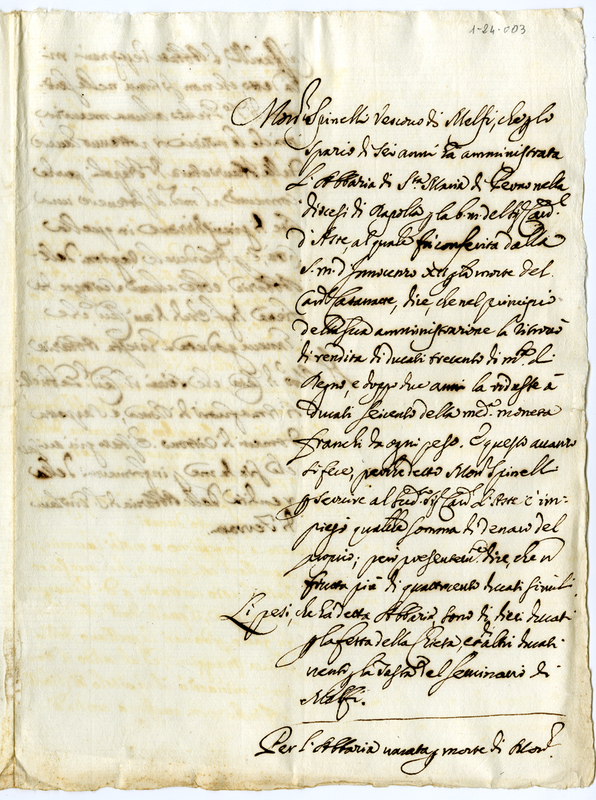 1-24-003
Mons.r Spinelli Vescovo di Melfi, che p lo
spazio di sei anni hà amministrata
l'Abbazia di S.ta Maria di nella
diocesi di Rapolla p la b. m. del Sig.r Card.l
d'Aste, al quale fù conferita dalla
S. m. d'Innocenzo XII p la morte del
Card.l dice, che nel principio
della sua amministrazione la ritrovò
di rendita di ducati trecento di m.ta di
Regno, e doppo due anni la ridusse à
ducati seicento della med.a moneta
franchi da ogni peso. E questo avanzo
si fece, perche detto Mons.r Spinelli
p servire al sud.o Sig.r Card.l d'Aste im-
piegò qualche somma di denaro del
proprio; però presentem.te dice, che n
frutta più di quattrocento ducati simili.
Li pesi, che hà detta Abbazia, sono di dieci ducati
p la festa della Chiesa, et altri ducati
venti p la Tassa del Seminario di
Melfi.
Per l'Abbazia vacata p morte di Mons.r